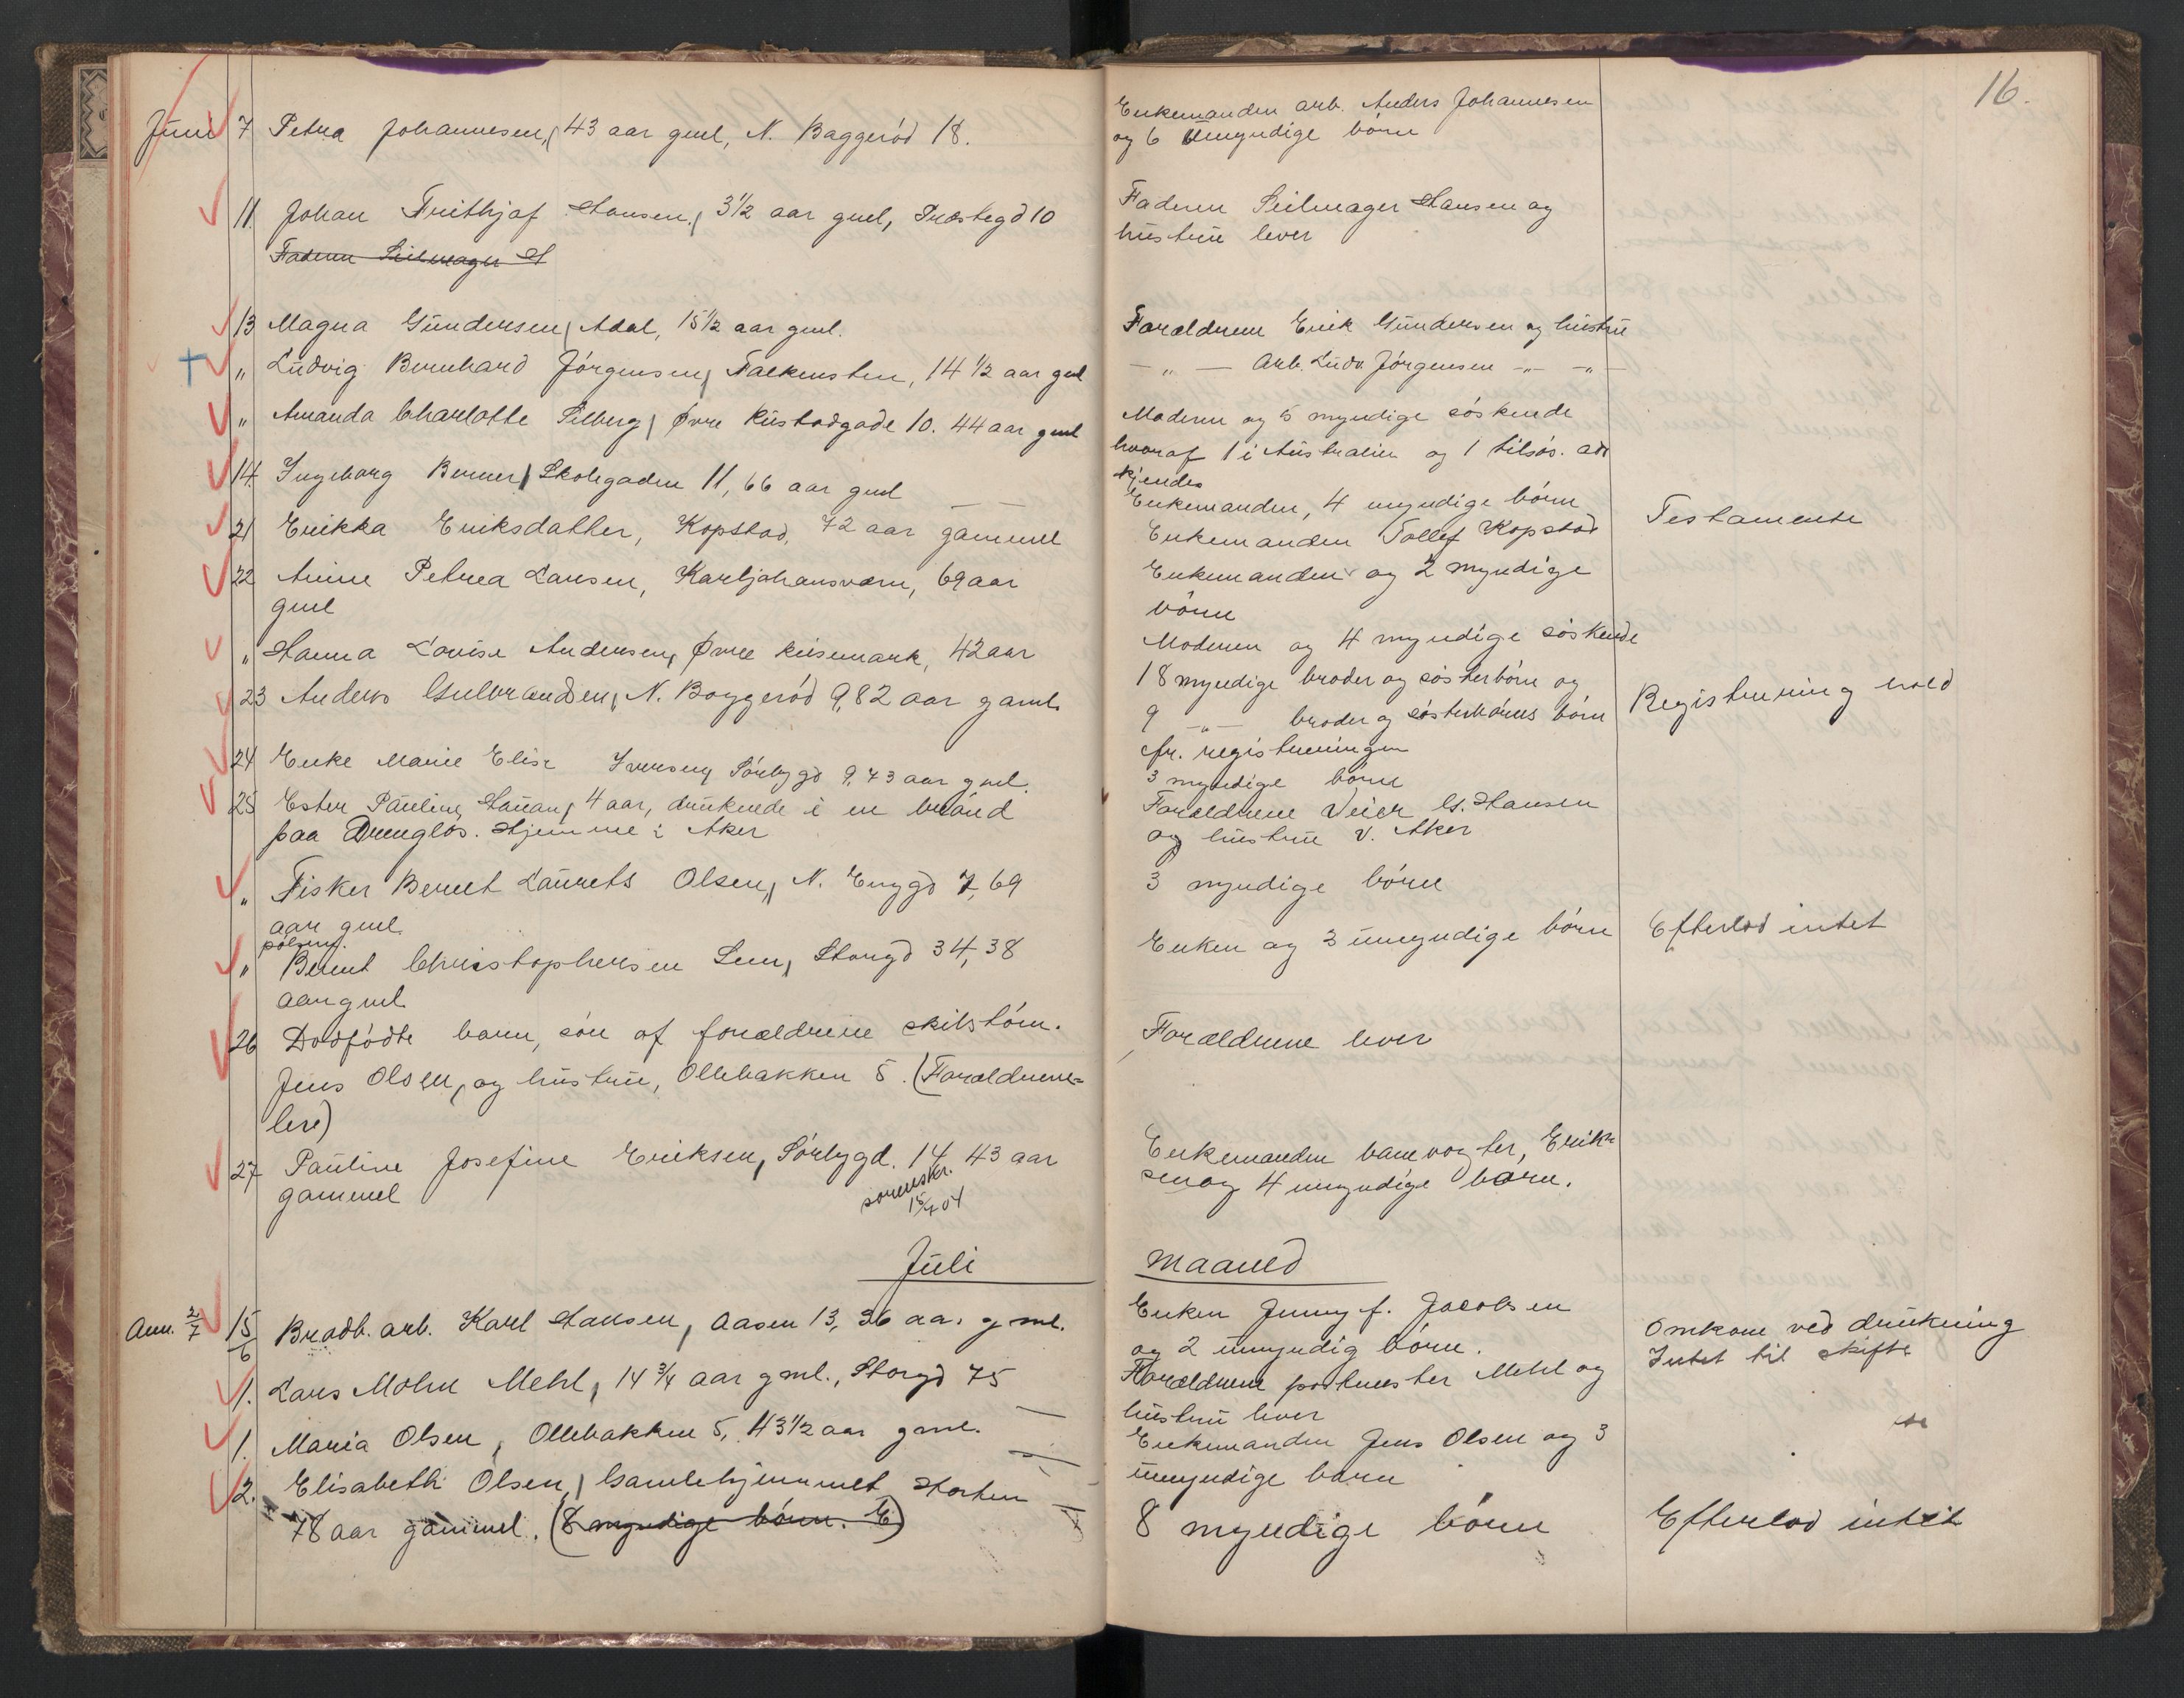 16.
Juni 7 Petra Johannesen, 43 aar gml, N. Baggerød 18.
Enkemanden arb. Anders Johannesen
og 6 umyndige børn
11. Johan Frithjof Hansen, 3½ aar gml, Præstegd 10
Faderen Seilmager H
Faderen Seilmager Hansen og
hustru lever
13 Magna Gundersen, Adal, 15½ aar gml.
Forældrene Erik Gundersen og hustru
" Ludvig Bernhard Jørgensen, Falkensten, 14½ aar gml
— " — Arb. Ludv. Jørgensen —"— —"—
" Amanda Charlotte Silberg, Øvre Keistadgade 10. 44 aar gml
Moderen og 5 myndige søskende
hvoraf 1 i Australien og 1 tilsøs. adr
kjendes
14. Ingeborg Berner, Skolegaden 11, 66 aar gml
Enkemanden, 4 myndige børn
21 Erikka Eriksdatter, Kopstad, 72 aar gammel
Enkemanden Tollef Kopstad
Testamente
22 Anne Petrea Larsen, Karljohansværn, 69 aar
gml
Enkemanden og 2 myndige
børn
" Hanna Lovise Andersen, Øvre Keisemark, 42 aar
Moderen og 4 myndige søskende
23 Anders Gulbrandsen, N. Baggerød 9, 82 aar gaml.
18 myndige broder og søsterbørn og
9 —"— broder og søsterbørns børn
cfr. registreringen
Registrering hold
24 Enke Marie Elise Iversen, Sørbygd 9, 73 aar gml.
3 myndige børn
25 Ester Pauline Hansen, 4 aar, druknede i en brønd
paa Drenglos. Hjemme i Aker
Forældrene Veier G. Hansen
og hustru V. Aker
" Fisker Bernt Laurets Olsen, N. Enggd 7, 69
aar gml.
3 myndige børn
pølsem.
" Bernt Christophersen Lem, Storgd 34, 38
aar gml.
Enken og 3 umyndige børn
Efterlod intet
26 Dødfødte barn, søn af forældrene skibstøm.
Jens Olsen, og hustru, Ollebakken 5. (Forældrene
leve)
Forældrene lever
27 Pauline Josefine Eriksen, Sørbygd. 14, 43 aar
gammel
sorenskr.
15/7 04
Enkemanden banevogter, Erik-
sen og 4 umyndige børn.
Juli maaned
Anm. 2/7 15/6 Bradb. arb. Karl Hansen, Aasen 13, 36 aar gml.
Enken Jenny f. Jacobsen
og 2 umyndig børn.
Omkom ved drukning
Intet til skifte
1. Lars Mohn Mehl, 14¾ aar gml., Storgd 75
Forældrene postmester Mehl og
hustru lever
1. Maria Olsen, Ollebakken 5, 43½ aar gml.
Enkemanden Jens Olsen og 3
umyndige børn
2. Elisabeth Olsen, Gamlehjemmet Horten
78 aar gammel. (8 myndige børn. E)
8 myndige børn
Efterlod intet